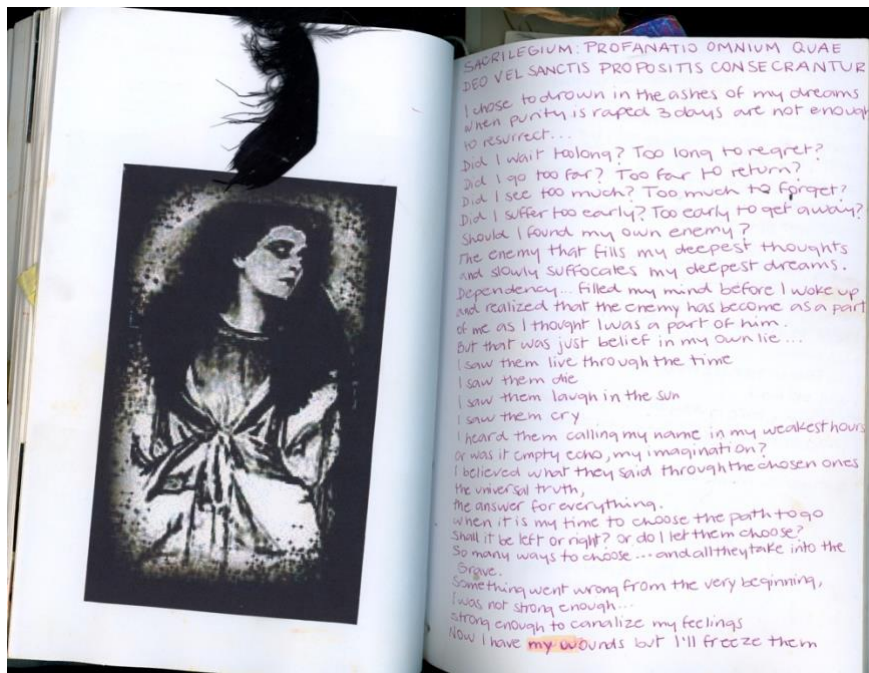 SACRILEGIUM: PROFANATIO OMNIUM QUAE
DEO VEL SANCTIS PROPOSITIS CONSECRANTUR
I chose to drown in the ashes of my dreams
when purity is raped 3 days are not enough
to resurrect...
Did I wait too long? Too long to regret?
Did I go too far? Too far to return?
Did I see too much? Too much to forget?
Did I suffer too early? Too early to get away?
Should I found my own enemy?
The enemy that fills my deepest thoughts
and slowly suffocates my deepest dreams.
Dependency... filled my mind before I woke up
and realized that the enemy has become as a part
of me as I thought I was a part of him.
But that was just belief in my own lie...
I saw them live through the time
I saw them die
I saw them laugh in the sun
I saw them cry
I heard them calling my name in my weakest hours
or was it empty echo, my imagination?
I believed what they said through the chosen ones
the universal truth,
the answer for everything.
when it is my time to choose the path to go
shall it be left or right? or do I let them choose?
So many ways to choose... and all they take into the
Grave.
Something went wrong from the very beginning,
I was not strong enough...
strong enough to canalize my feelings
Now I have my wounds but I'll freeze them